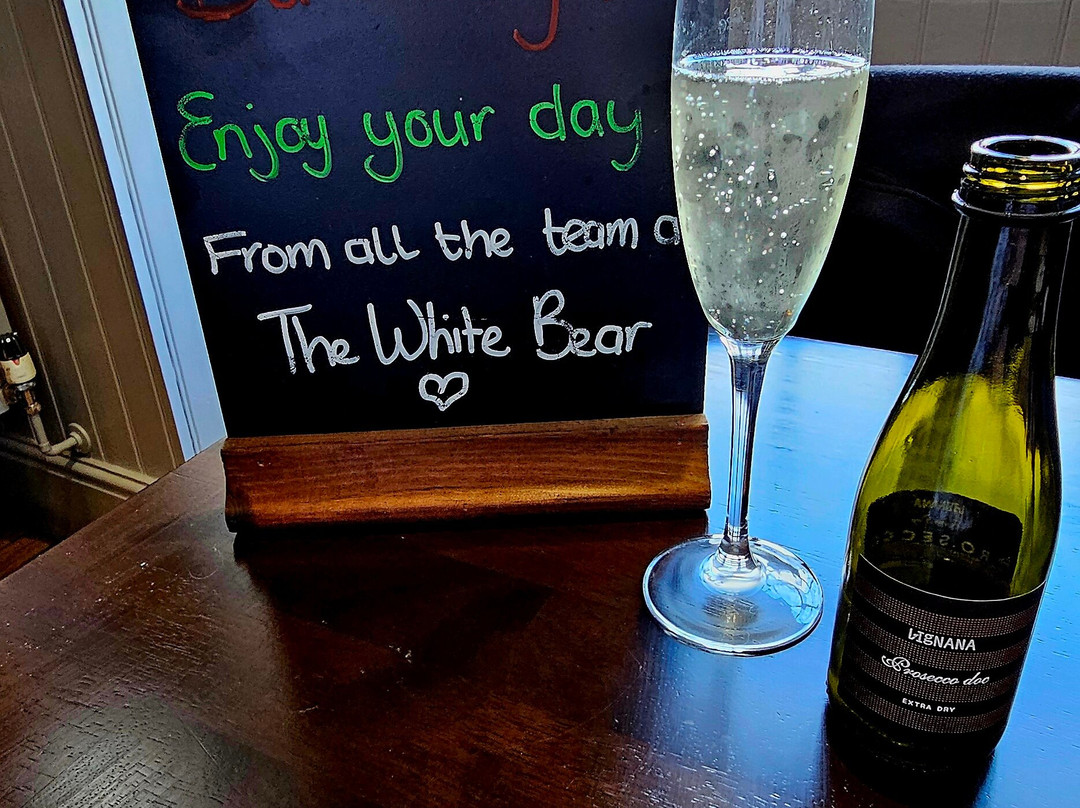 Enjoy your day
From all the team a
The White Bear
VIGNANA
Prosecco doc
EXTRA DRY